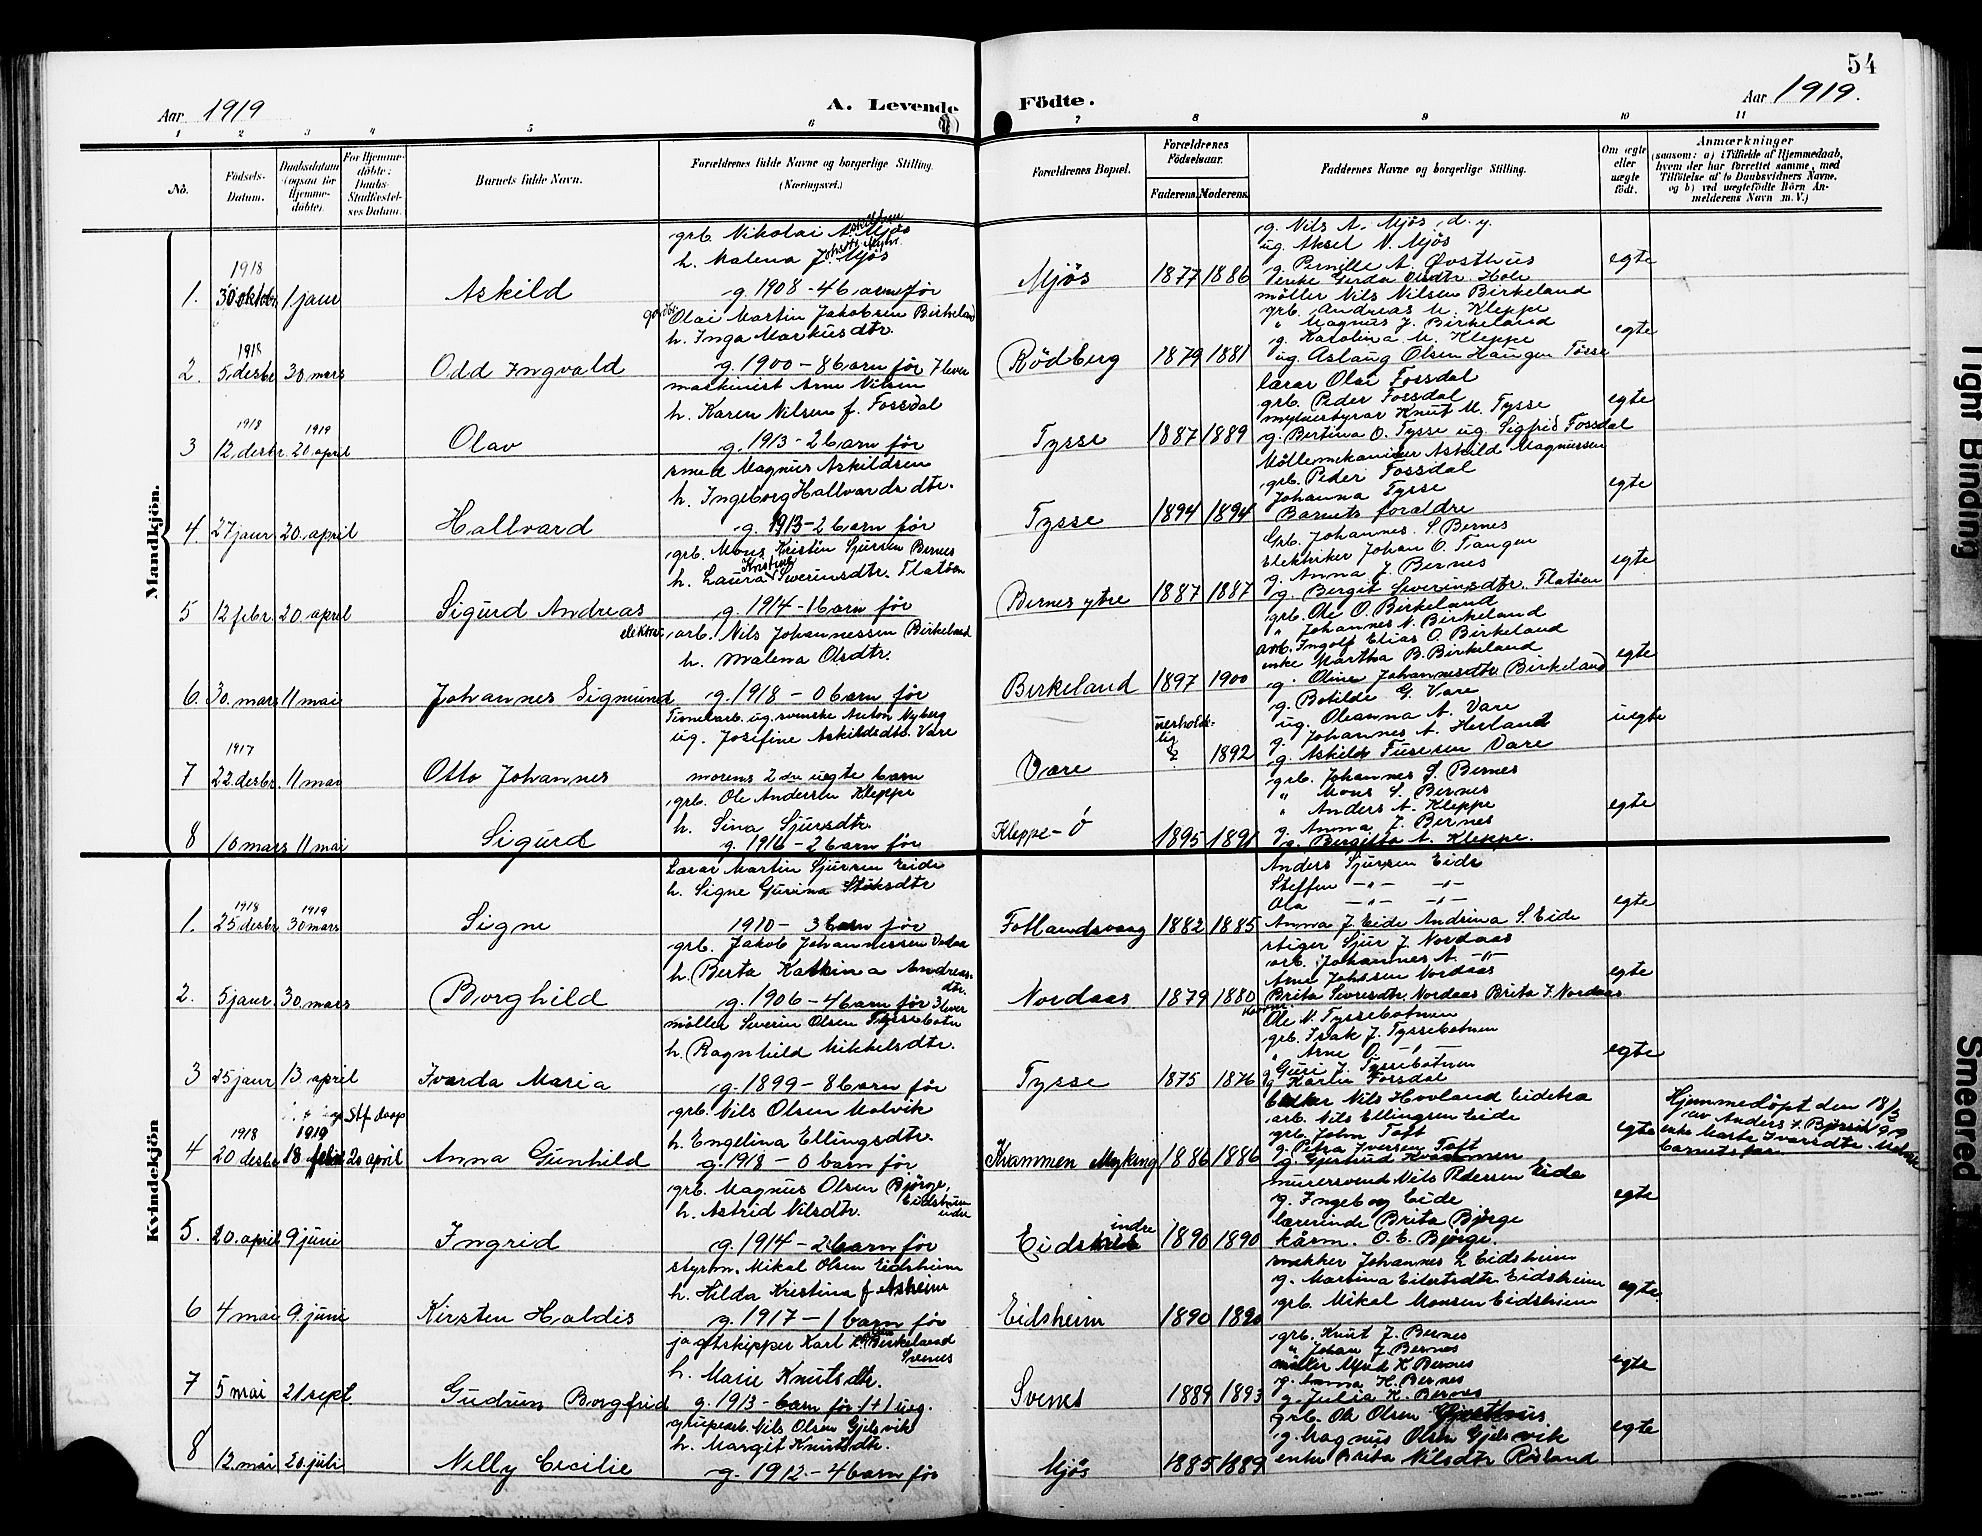 54
Aar 1919
A. Levende
Födte.
Aar 1919.
1 2 3 4 5 6 7 8 9 10 11
No.
Födsels-Datum.
Daabsdatum (ogsaa för Hjemme-döbte).
For Hjemme-döbte: Daabs-Stadfæstel-ses Datum.
Barnets fulde Navn.
Forældrenes fulde Navne og borgerlige Stilling.
(Næringsvei.)
Forældrenes Bopæl.
Forældrenes Födselsaar.
Faderens. Moderens.
Faddernes Navne og borgerlige Stilling.
Om ægte eller uægte födt.
Anmærkninger
(saasom: a) i Tilfælde af Hjemmedaab,
hvem der har forrettet samme, med
Tilföielse af to Daabsvidners Navne.
og b) ved uægtefödte Börn An-
melderens Navn m. V.)
Mandkjön.
grb. Nikolai A. Mjøs
h. Malena J. Mjøs
1. 1918 30 oktobr 1 jaur Askild g. 1908 - 4 barn før Mjøs 1877 1886 egte
g. Nils A. Mjøs d. y.
ug. Aksel N. Mjøs
g. Pernille A. Øvsthus
møller Nils Nilsen Birkeland
Olai Martin Jakobsen Birkeland
h. Inga Markusdtr.
2. 1918 5 desbr 30 mars Odd Ingvald g. 1900 - 8 barn før 7 lever Rödberg 1879 1881 egte
grb. Andreas M. Kleppe
" Magnus J. Birkeland
g. Karolina M. Kleppe
ug. Aslaug Olsen Haugen Tøsse
maskinist Arne Nilsen
h. Karen Nilsen f. Fossdal
3 1918 12 desbr. 1919 20 april Olav g. 1913 - 2 barn før Tysse 1887 1889 egte
lærar Olai Fossdal
grb. Peder Fossdal
meldestyrar Knut M. Tysse
g. Bertina O. Tysse ug. Sigfrid Fossdal
smed Magnus Askildsen
h. Ingeborg Hallvardsdtr.
4. 27 jaur 20. april Hallvard g. 1913 - 2 barn før Tysse 1894 1894 egte
Møllemekaniker Askild Magnussen
grb. Peder Fossdal
Johanna Tysse
Barnets foraldre
grb. Mons Kristin Sjursen Bernes
h. Laura Kristine Severinsdtr. Flatøen
5 12 febr. 20 april Sigurd Andreas g. 1914 - 1 barn før Bernes ytre 1887 1887 egte
Grb. Johannes. S. Bernes
Elektriker Johan O. Tangen
g. Anna J. Bernes
g. Bergit Severinsdtr. Flatøen
arb. Nils Johannessen Birkeland
h. Malena Olsdtr.
6. 30. mars 11 mai Johannes Sigmund g. 1918 - 0 barn før Birkeland 1897 1900 egte
grb. Ole O. Birkeland
" Johannes N. Birkeland
arb. Ingolf Elias O. Birkeland
enke Martha B. Birkeland
g. Oline Johannesdtr. Birkeland
arb. ug. svenske Anton Nyberg
ug. Josefine Askildsdtr. Vare
7 1917 22 desbr. 11 mai Otto Johannes morens 2 dre uegte barn Vare 1892 uegte
g. Botilde G. Vare
ug. Oleanna A. Vare
g. Johannes A. Herland
g. Askild Vare
grb. Ole Andersen Kleppe
h. Sina Sjursdtr.
8 10 mars 11 mai Sigurd g. 1916 - 2 barn før Kleppe - Ö 1895 1891 egte
grb. Johannes S. Bernes
" Mons S. Bernes
" Anders A. Kleppe
g. Anna J. Bernes
g. Bergitta A. Kleppe.
Kvindekjön
Lærar Martin Sjursen Eide
h. Signe Gurina
1. 1918 25 desbr 1919 30 mars Signe 1910 - 3 barn før Fotlandsvaag 1882 1885 egte
Anders Sjursen Eide
Steffen -"- -"-
Ola -"- -"-
Anna J. Eide Andrina S. Eide
grb. Jakob Johannessen
h. Berta Katrina Andreas-dtr.
2. 5 jaur. 30 mars Borghild g. 1906 - 4 barn før 3 lever Nordaas 1879 1880 egte
stiger Sjur J. Nordaas
arb. Johannes A. -"-
Arne Johssen Nordaas
Brita Sevrisdtr. Nordaas Brita J. Nordaas
møller Severin Olsen Tyssebotn
h. Ragnhild Mikkelsdtr.
3 25 jaur 13 april Ivarda Maria g. 1899 - 8 barn før Tysse 1875 1876 egte
Ole N. Tyssebotnen
grb. Isak J. Tyssebotnen
" Arne O. -"-
Guri J. Tyssebotnen
g. Karlin Fossdal
grb. Nils Olsen Molvik
h. Engelina Ellingsdtr.
4 1918 20 desbr 1919 18 20 april Anna Gunhild g. 1918 - 0 barn før Kvammen Myking 1886 1886 egte
Nils Hovland Eidetra
arb. Nils Ellingsen Eide
grb. John Toft
g. Petra Iversen Toft
g. Gjertrud Kvammen
Hjemmedøpt den 18/3
av Anders
enke Marta Ivarsdtr.
barnets far.
grb. Magnus Olsen Bjørge,
Eidsheim indre
h. Astrid Nilsdtr.
5. 20. april 9 juni Ingrid g. 1914 - 2 barn før Eidsheim indre 1890 1890 egte
murersvend Nils Pedersen Eide
g. Ingeborg Eide
lærerinde Brita Bjørge
O. E. Bjørge.
styrm. Mikal Olsen Eidsheim
h. Hilda Kristina f. Askeim
6 4 mai 9. juni Kirsten Haldis g. 1917 - 1 barn før Eidsheim 1890 egte.
snekker Johannes L Eidsheim
g. Martina Eilertsdtr. Eidsheim
grb. Mikal Monsen Eidsheim
jagtskipper Karl Birkeland
Svenes
h. Marie Knutsdtr.
7 5 mai 21 sept. Gudrun Borgfrid g. 1913 - barn før 1 + 1 ueg. Svenes 1889 1893 egte
grb. Knut J. Bernes
" Johan J. Bernes
møller K Bernes
g. Anna H. Bernes
g. Julia K. Bernes
Nils Olsen Gjelsvik
h. Margit Knutsdtr.
8 12. mai 20. juli Nelly Cecilie g. 1912 - 4 barn før Mjøs 1885 1889 egte
grb. Ole Olsen
g. Magnus Olsen Gjelsvik
enke Brita Nilsdtr Røsland
Tight Binding
Smeared